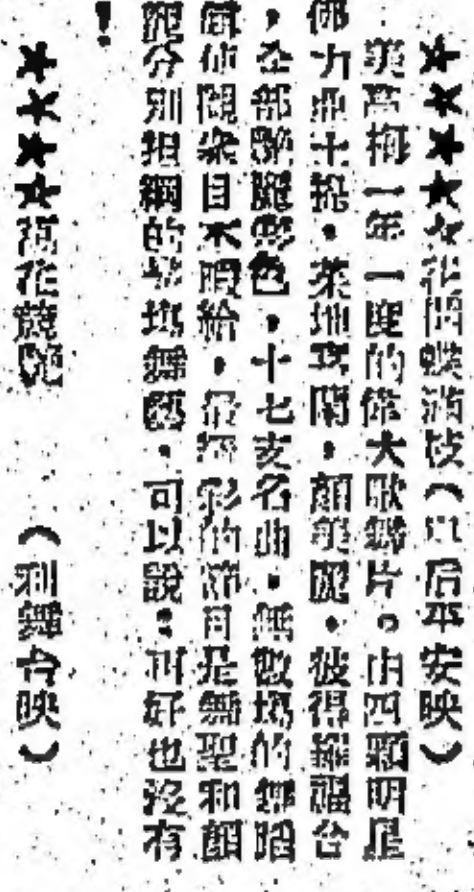 ★★★★☆花間蝶滿枝(皇后平安映)
美高梅一年一度的偉大歌舞片。由四顆明星
佛力亞士提,萊坤,顏美麗,彼得羅福合
,全部艷麗彩色,十七支名曲,無數塲的舞蹈
使觀衆目不暇給,最精彩的節目是舞聖和顏
麗分別担綱的塲舞藝,可以說:叫好也沒有
!
★★★★萬花競艷 (利舞台映)